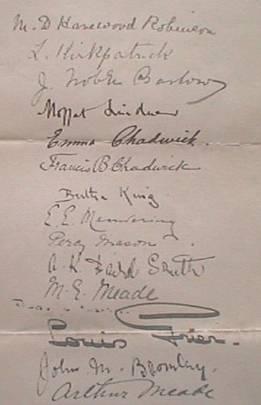 M. D Hazelwood Robinson
L. Kirkpatrick
J Noble Barlow
Moffat Lindner
Emma Chadwick.
Francis B Chadwick
Bertha King
E. E.
Percy
A. K. Smith
M. E. Meade
Louis Grier.
John M. Bromley.
Arthur Meade